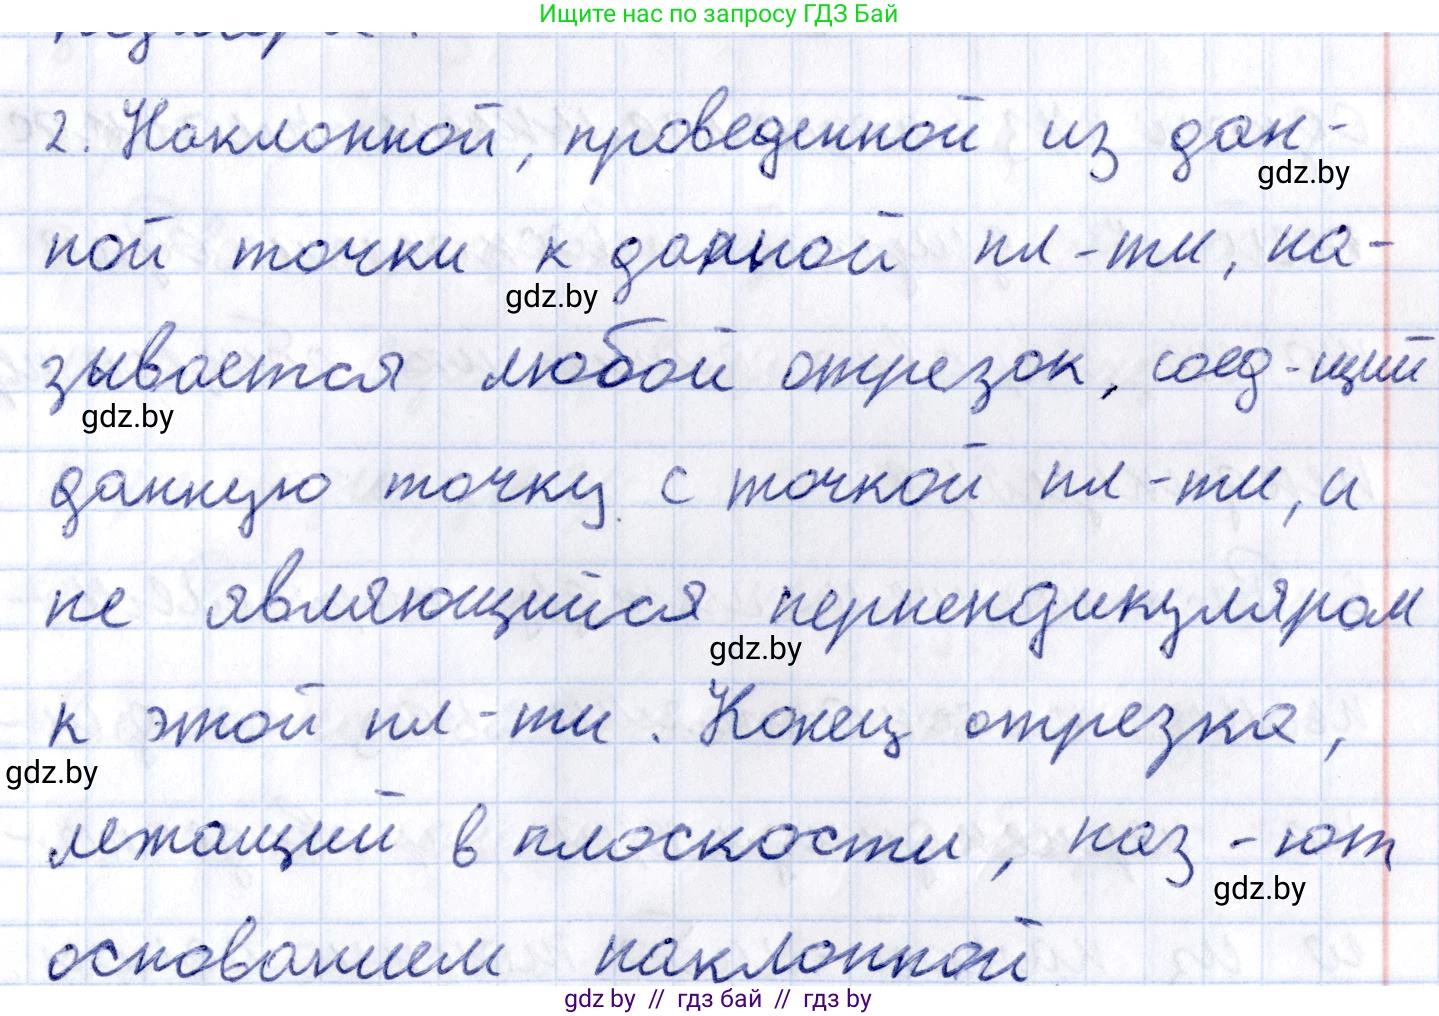 Ищите нас по запросу ГДЗ Бай
2. Наклонной, проведенной из дан-
gdz.by
ной точки к данной пл-ти, на-
gdz.by
зывается любой отрезок, соед-щий
gdz.by
данную точку с точкой пл-ти, и
не являющийся перпендикуляром
gdz.by
к этой пл-ти. Конец отрезка,
gdz.by
лежащий в плоскости, наз-ют
gdz.by
основанием наклонной
gdz by // гдз бай // гдз by